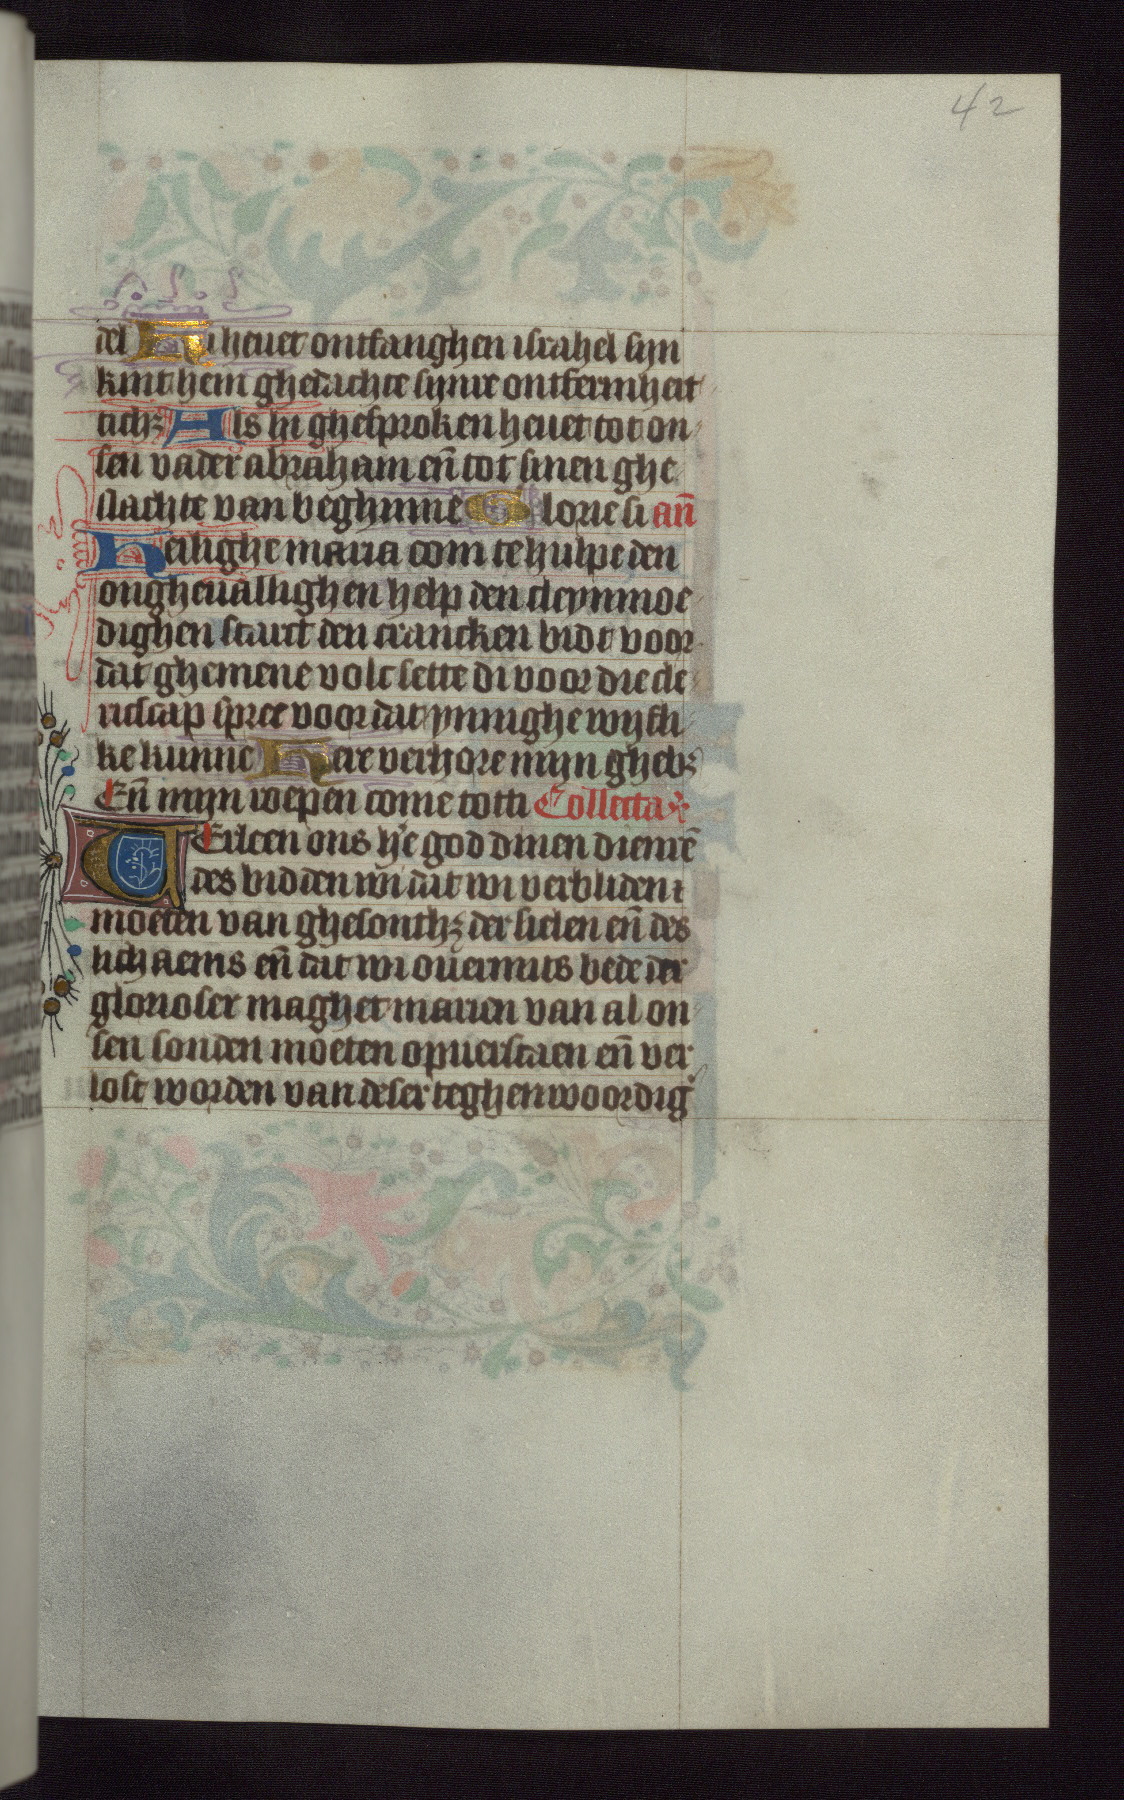 42
del Hi heuet ontfanghen israhel sijn
kint hem ghedachte sijnre ontfermhert
ticħ Als hi ghesproken heuet tot on
sen vader abraham en̄ tot sinen ghe
slachte van beghinnē Glorie si an̄
Heilighe maria com te hulpe den
ongheuallighen help den cleynmoe
dighen starct den crancken bidt voor
dat ghemene volc sette di voor die cle
riscap sprec voor dat ynnighe wyfli
ke kunne Here verhore mijn gheb₃
En̄ mijn roepen come totti Collecta
Verleen ons he᷑ god dinen dienrē
des bidden wi dat wi verbliden
moeten van ghesonth₃ der sielen en̄ des
lichaems en̄ dat wi ouermits bede der
glorioser maghet marien van al on
sen sonden moeten opuerstaen en̄ ver
lost worden van deser teghenwoordig